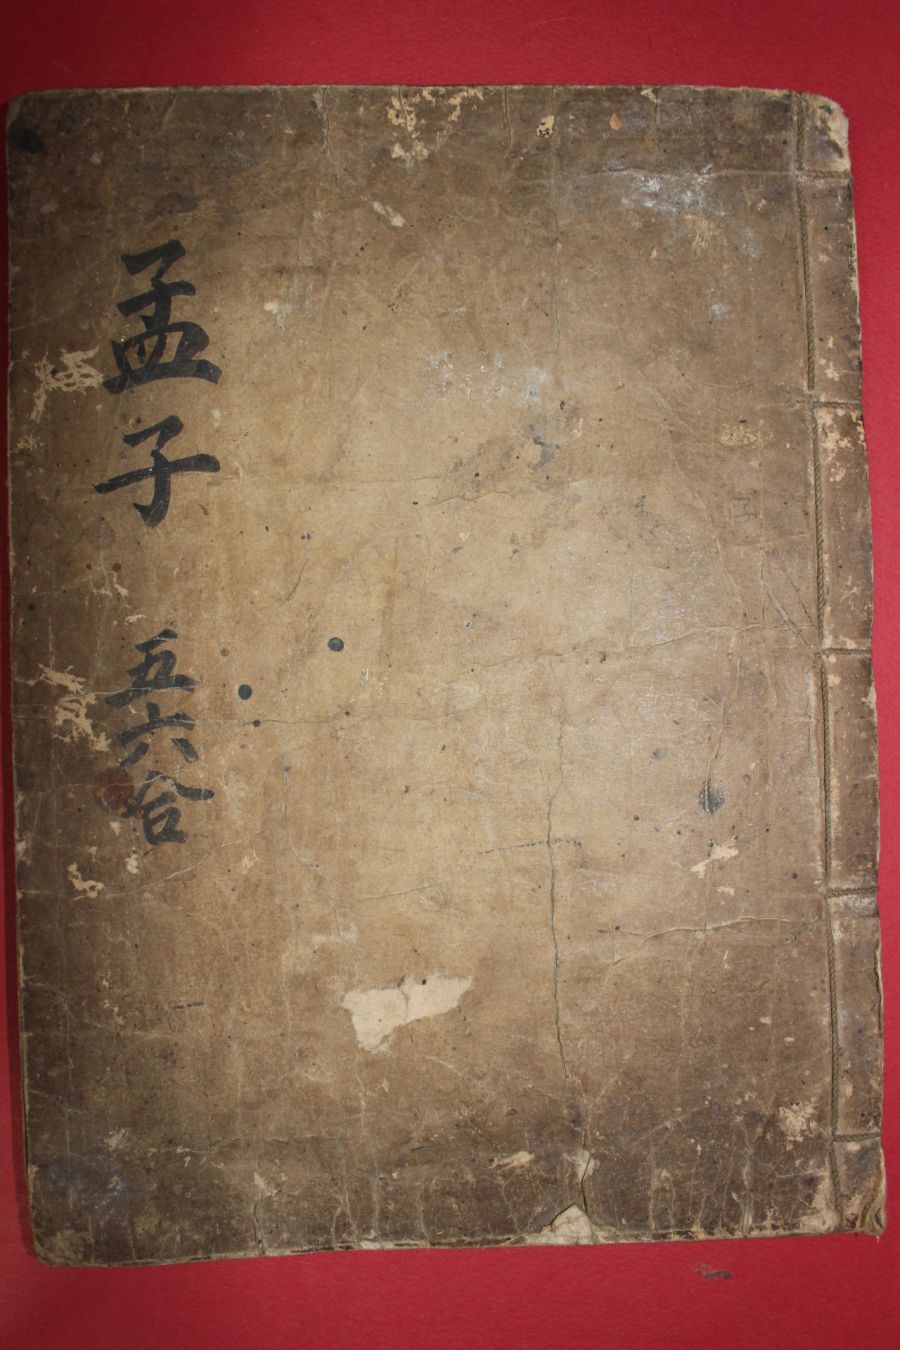 孟子 五六合